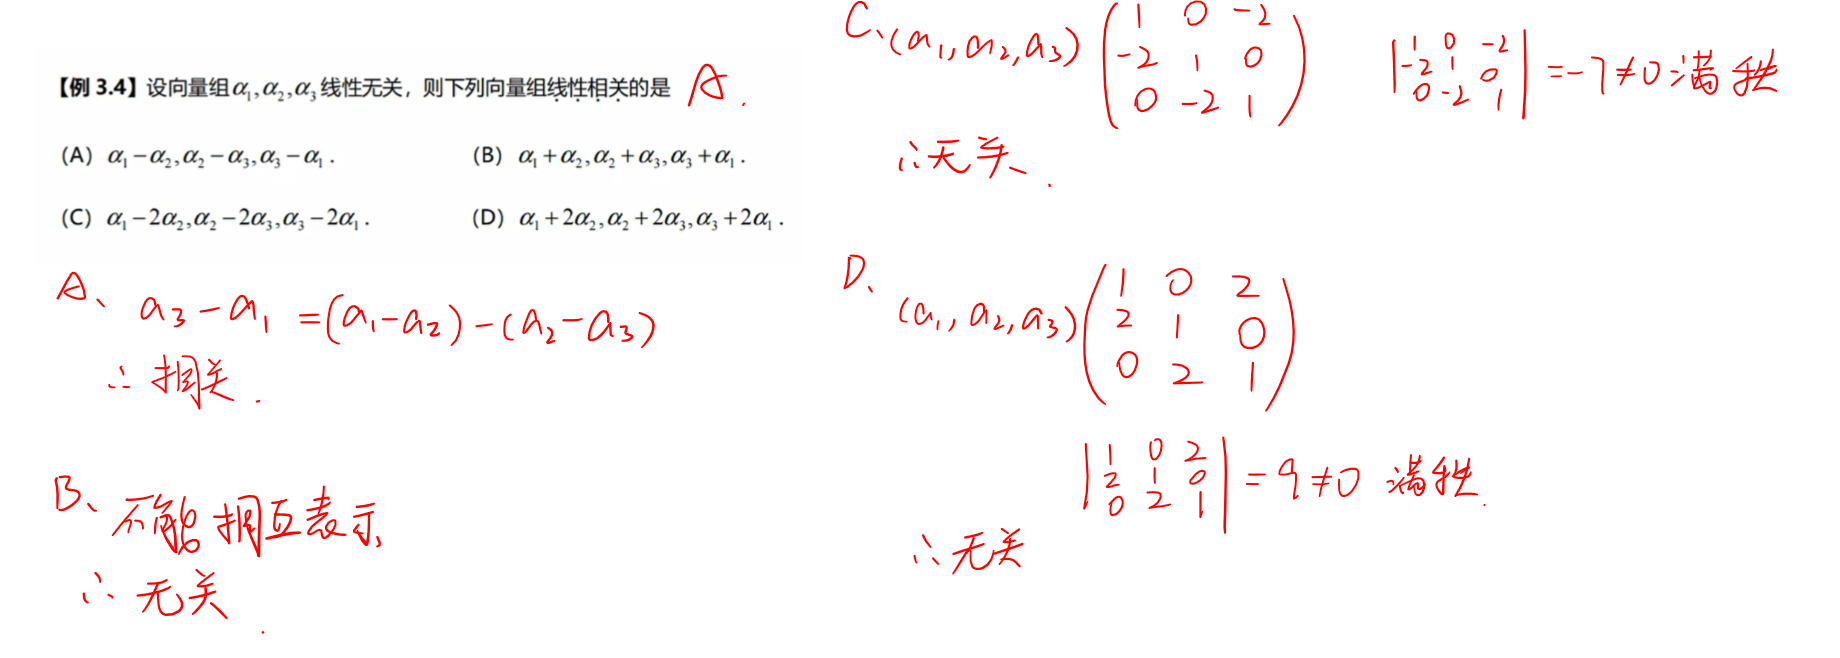 【例 3.4】设向量组α₁,α₂,α₃线性无关，则下列向量组线性相关的是 A.
(A) α₁-α₂,α₂-α₃,α₃-α₁.
(B) α₁+α₂,α₂+α₃,α₃+α₁.
(C) α₁-2α₂,α₂-2α₃,α₃-2α₁.
(D) α₁+2α₂,α₂+2α₃,α₃+2α₁.
A、 a₃-a₁=(a₁-a₂)-(a₂-a₃)
∴相关.
B、不能相互表示,
∴无关.
C、(a₁,a₂,a₃)
1 0 -2
-2 1 0
0 -2 1
1 0 -2
-2 1 0
0 -2 1
=-7≠0满秩
∴无关.
D、
(a₁,a₂,a₃)
1 0 2
2 1 0
0 2 1
1 0 2
2 1 0
0 2 1
=9≠0 满秩.
∴无关